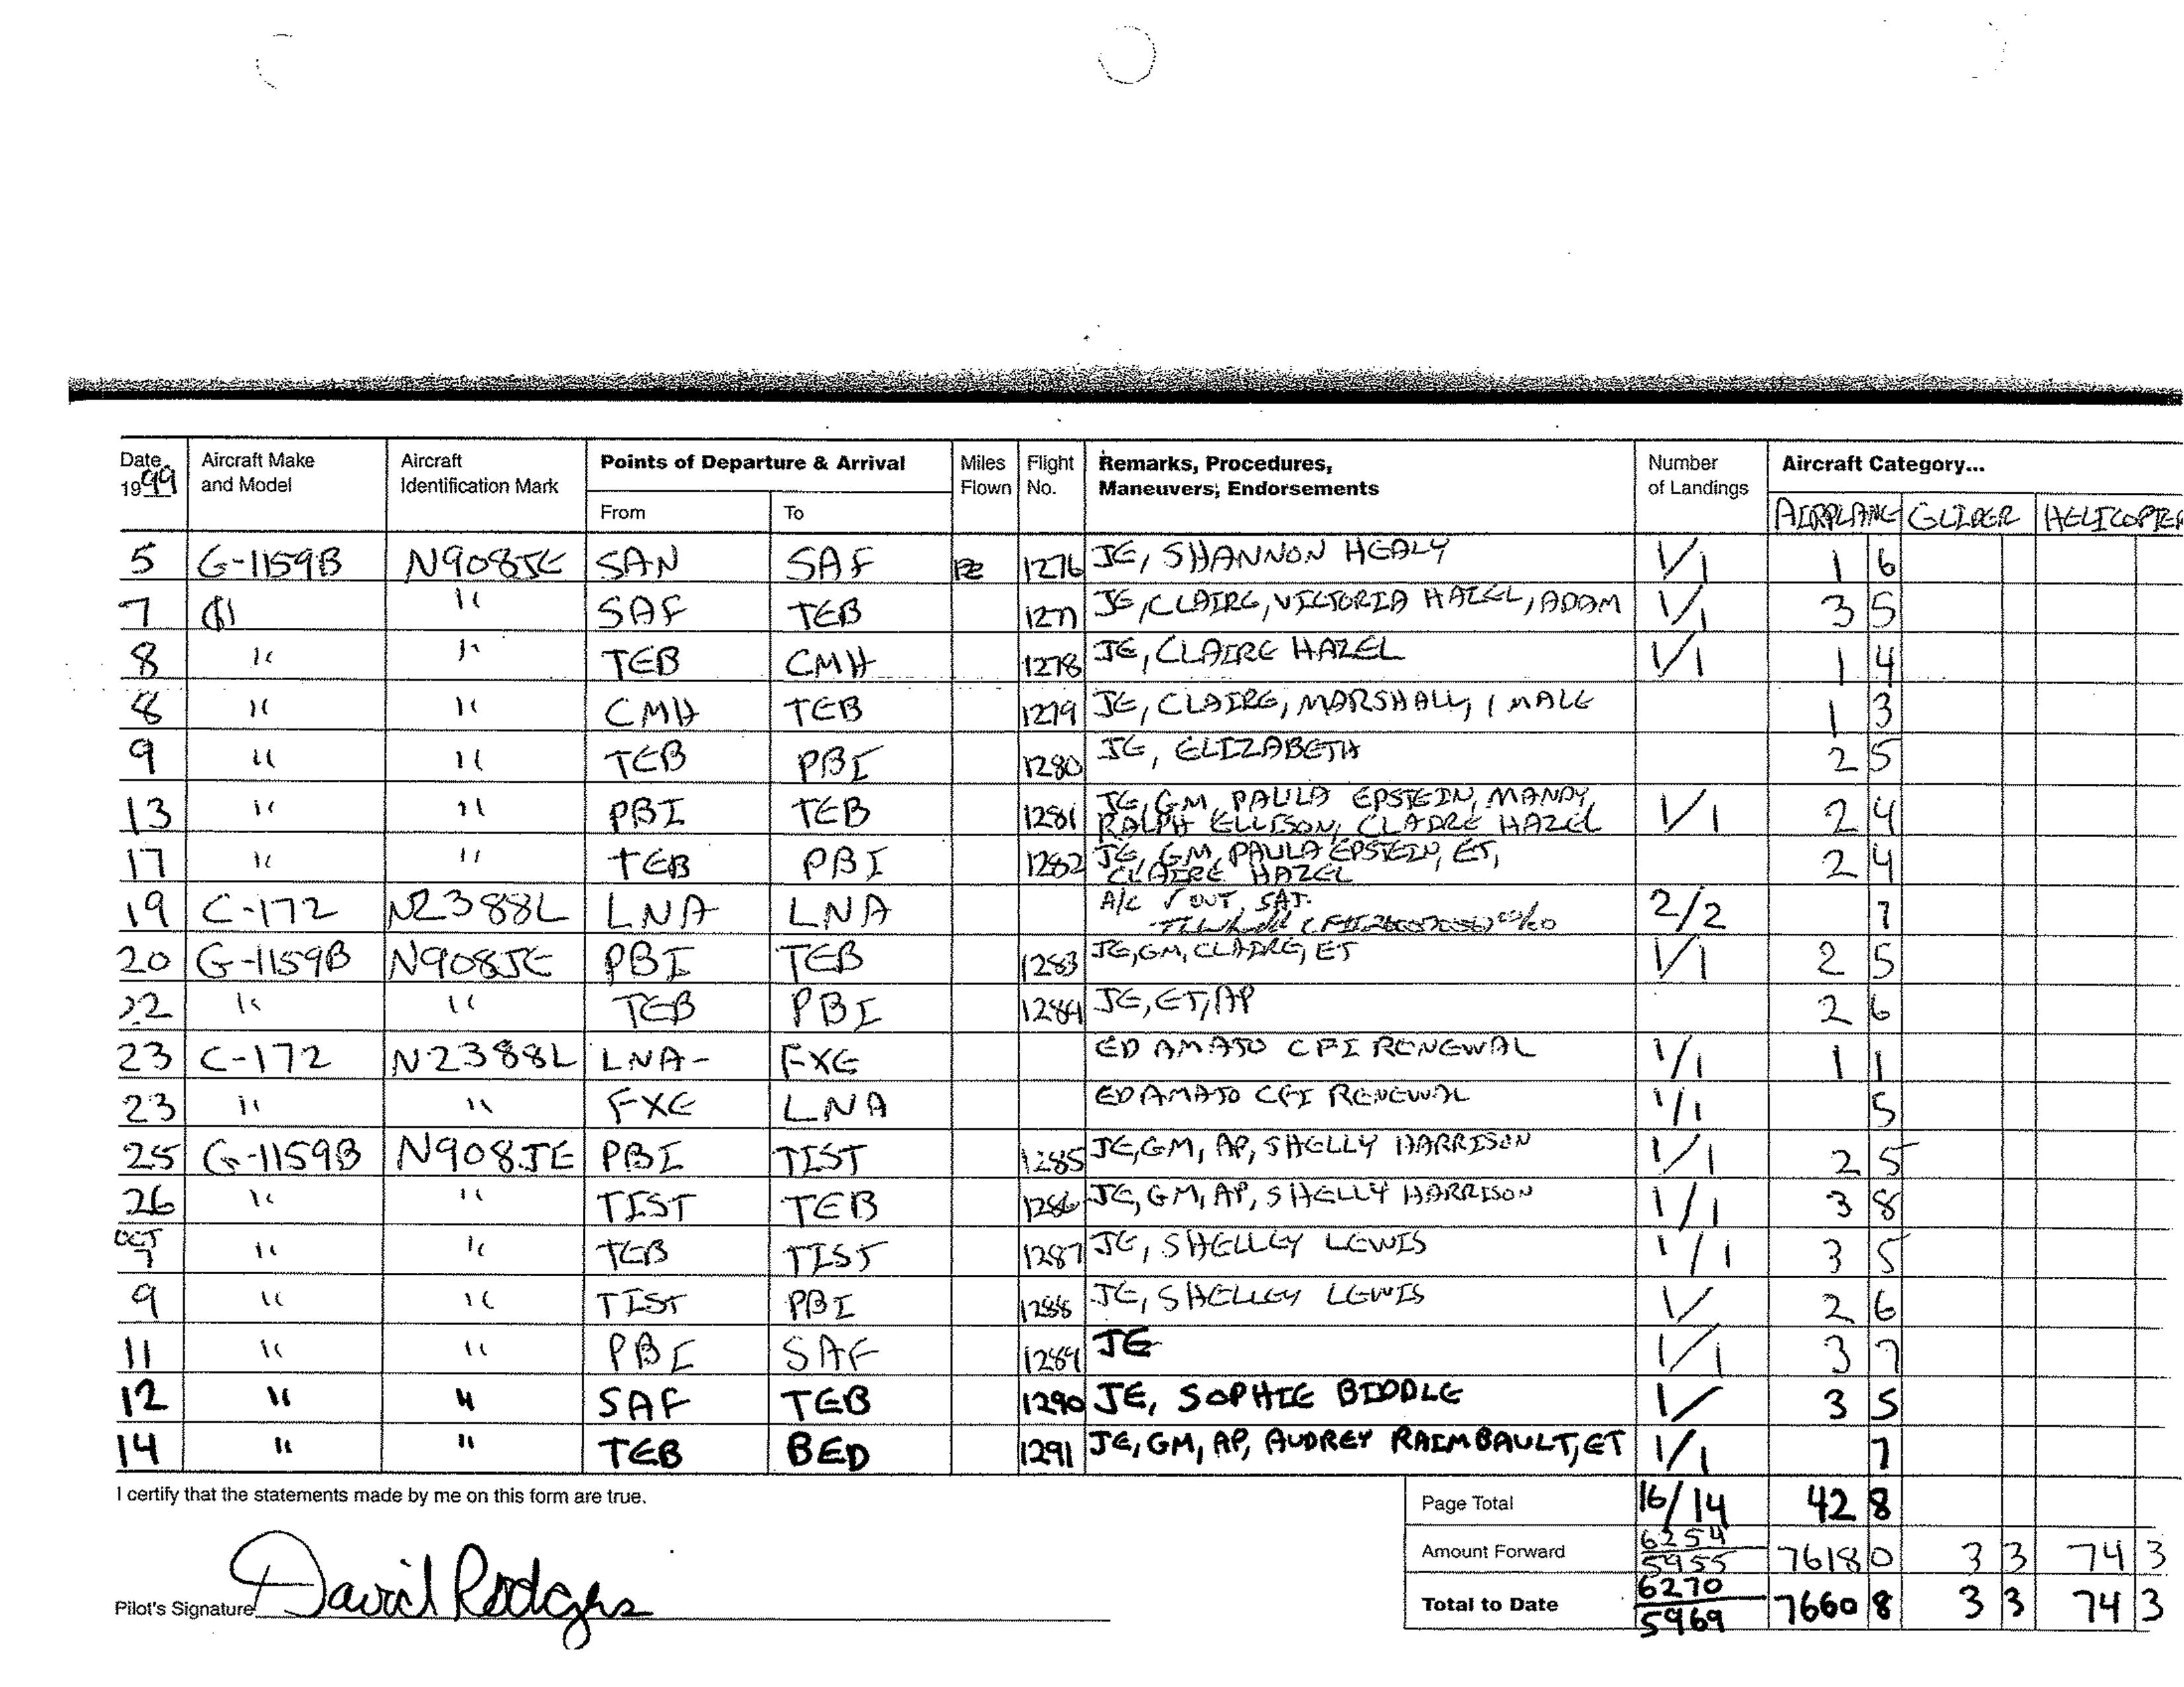 Date 1999 Aircraft Make and Model Aircraft Identification Mark Points of Departure & Arrival Miles Flown Flight No. Remarks, Procedures, Maneuvers, Endorsements Number of Landings Aircraft Category...
From To AIRPLANE GLIDER HELICOPTER
5 G-1159B N908JE SAN SAF 1276 JE, SHANNON HEALY 1/1 1 6
7 " SAF TEB 1277 JE, CLAIRE, VICTORIA HAZEL, ADAM 1/1 3 5
8 " " TEB CMH 1278 JE, CLAIRE HAZEL 1/1 1 4
8 " " CMH TEB 1279 JE, CLAIRE, MARSHALL, 1 MALE 1 3
9 " " TEB PBI 1280 JE, ELIZABETH 2 5
13 " " PBI TEB 1281 JE, GM, PAULA EPSTEIN, MANDY, 1/1 2 4
RALPH ELLISON, CLAIRE HAZEL
17 " " TEB PBI 1282 JE, GM, PAULA EPSTEIN, ET, 2 4
CLAIRE HAZEL
19 C-172 N2388L LNA LNA A/C √ OUT, SAT. 2/2 7
20 G-1159B N908JE PBI TEB 1283 JE, GM, CLAIRE, ET 1/1 2 5
22 " " TEB PBI 1284 JE, ET, AP 2 6
23 C-172 N2388L LNA- FXE ED AMATO CFI RENEWAL 1/1 1 1
23 " " FXE LNA ED AMATO CFI RENEWAL 1/1 5
25 G-1159B N908JE PBI TIST 1285 JE, GM, AP, SHELLY HARRISON 1/1 2 5
26 " " TIST TEB 1286 JE, GM, AP, SHELLY HARRISON 1/1 3 8
OCT 7 " " TEB TIST 1287 JE, SHELLEY LEWIS 1/1 3 5
9 " " TIST PBI 1288 JE, SHELLEY LEWIS 1/ 2 6
11 " " PBI SAF 1289 JE 1/1 3 7
12 " " SAF TEB 1290 JE, SOPHIE BIDDLE 1/ 3 5
14 " " TEB BED 1291 JE, GM, AP, AUDREY RAIMBAULT, ET 1/1 7
I certify that the statements made by me on this form are true. Page Total 16/14 42 8
Amount Forward 6254 5955 7618 0 3 3 74 3
Pilot's Signature David Rodgers Total to Date 6270 5969 7660 8 3 3 74 3